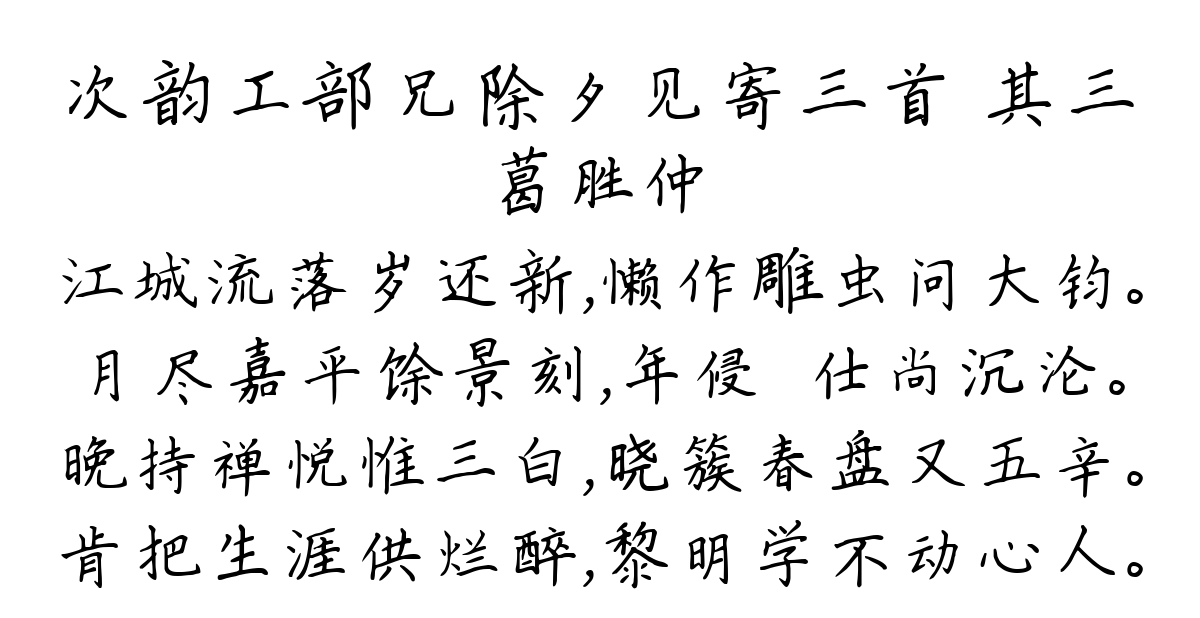 次韵工部兄除夕见寄三首 其三
葛胜仲
江城流落岁还新,懒作雕虫问大钧。
月尽嘉平馀景刻,年侵 仕尚沉沦。
晚持禅悦惟三白,晓簇春盘又五辛。
肯把生涯供烂醉,黎明学不动心人。